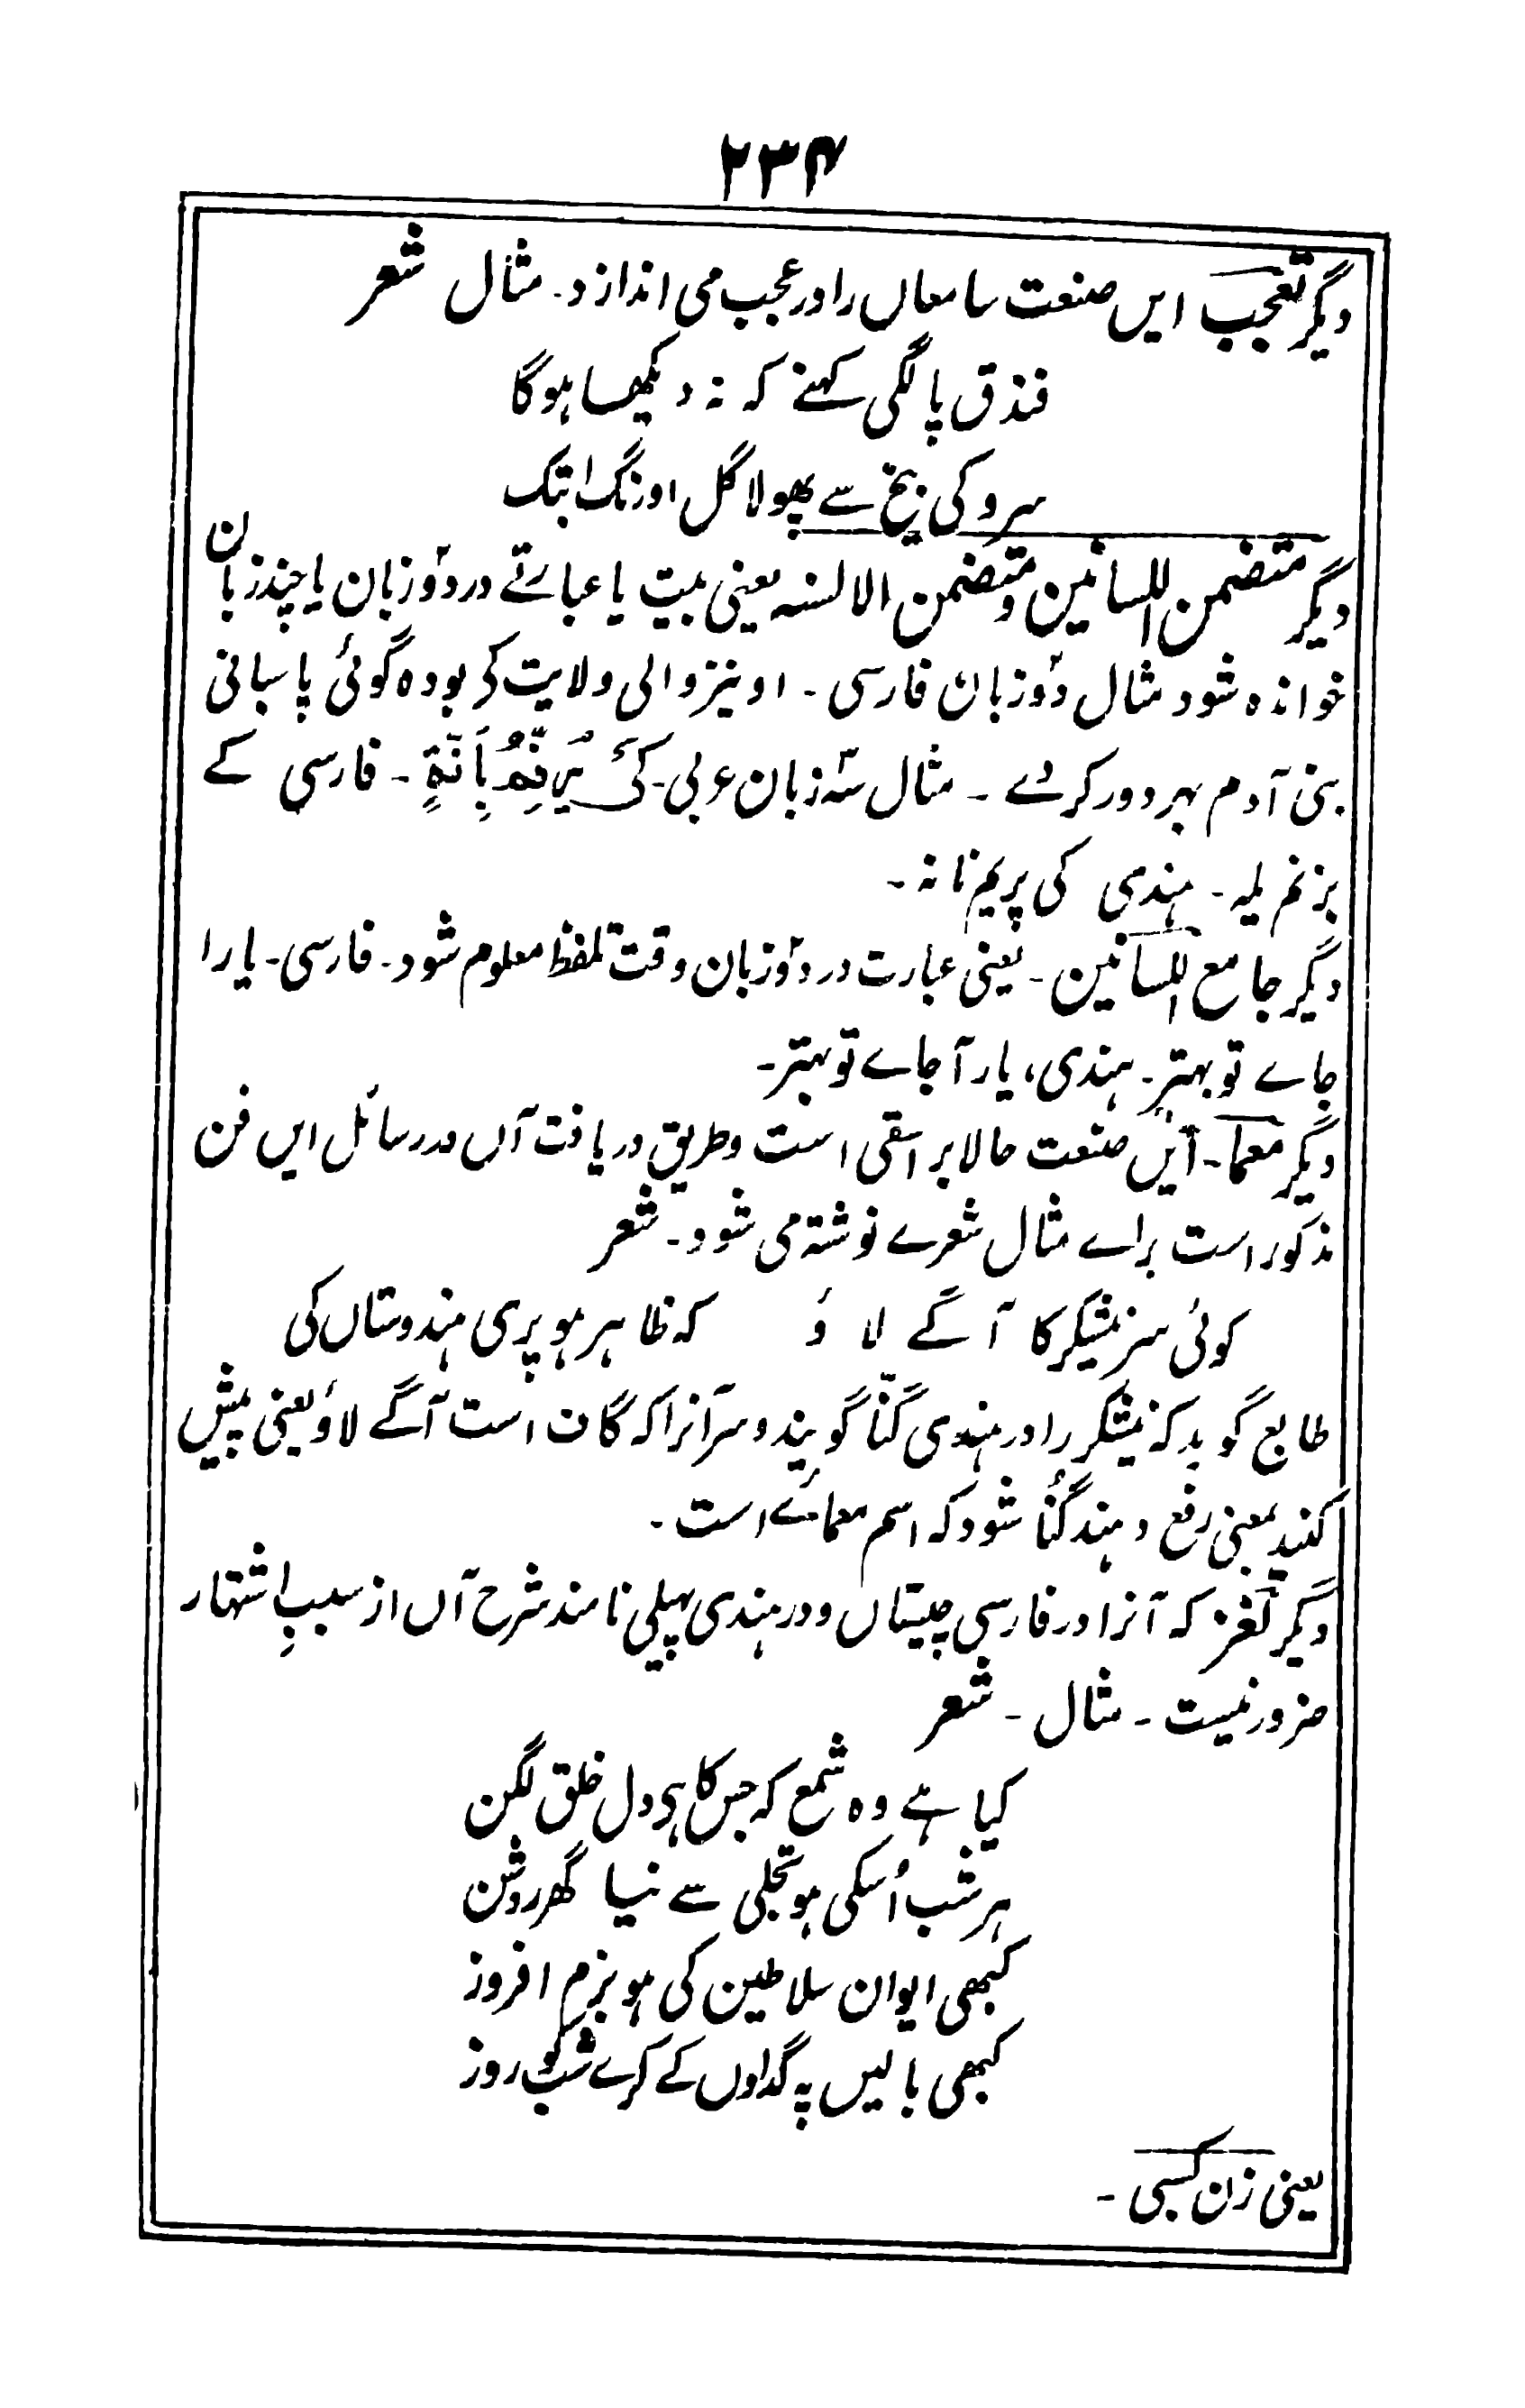 ۲۳۴
دیگر تعجب ایں صنعت سامعاں را در عجب می اندازد۔ مثال شعر
فندق پا لگی کہنے کہ نہ دیکھا ہوگا
سرو کی بیخ سے پھولا گل اورنگ ابتک
دیگر متضمن اللسانین و متضمن الالسنہ یعنی بیت یا عبارتے در دو زبان یا چند زبان
خواندہ شود مثال دو زبان فارسی۔ او نیز والی ولایت کر بودہ گوئی پاسبانی
بنی آدم بہر دور کردے ۔ مثال سہ زبان عربی۔ کَیْ ۔ فارسی کے
بزنم یلہ۔ ہندی کی پریم نانہ۔
دیگر جامع اللسانین۔ یعنی عبارت در دو زبان وقت تلفظ معلوم شود۔ فارسی۔ یارا
جاے تو بہتر۔ ہندی، یار آ جاے تو بہتر۔
دیگر معما۔ ایں صنعت حالا براسقی است و طریق دریافت آں در رسائل ایں فن
مذکور است براے مثال شعرے نوشتہ می شود۔ شعر
کوئی سر نیشکر کا آگے لاؤ کہ ظاہر ہو پری ہندوستاں کی
طابع گوید کہ نیشکر را در ہندی گنّا گویند و سر آنرا کہ گاف است آگے لاؤ یعنی پیش
کنید بمعنی رفع دہند گُنا شود کہ اسم معمائے است۔
دیگر لغز کہ آنرا در فارسی چیستاں و در ہندی پہیلی نامند شرح آں از سببِ اشتہار
ضرور نیست ۔ مثال ۔ شعر
کیا ہے وہ شمع کہ جس کا ہی دل خلق لگن
ہر شب اُسکی ہو تجلی سے نیا گھر روشن
کبھی ایوان سلاطین کی ہو بزم افروز
کبھی بالیں پہ گداوں کے کرے شب کو روز
یعنی زن کسبی ۔